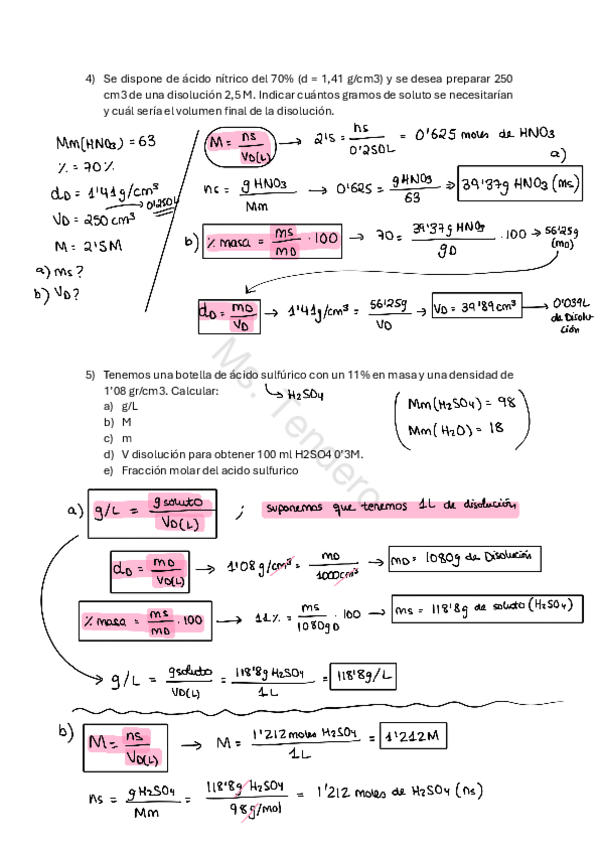 4) Se dispone de ácido nítrico del 70% (d = 1,41 g/cm3) y se desea preparar 250
cm3 de una disolución 2,5 M. Indicar cuántos gramos de soluto se necesitarían
y cuál sería el volumen final de la disolución.
Mm(HNO3) = 63
% = 70%
dD = 1'41 g/cm³
VD = 250 cm³ → 0'250L
M = 2'5M
a) ms?
b) VD?
M = ns / VD(L) → 2'5 = ns / 0'250L = 0'625 moles de HNO3
a)
ns = g HNO3 / Mm → 0'625 = g HNO3 / 63 → 39'37g HNO3 (ms)
b) % masa = ms / mD · 100 → 70 = 39'37g HNO3 / gD · 100 → 56'25g (mD)
dD = mD / VD → 1'41g/cm³ = 56'25g / VD → VD = 39'89cm³ → 0'039L de Disolución
5) Tenemos una botella de ácido sulfúrico con un 11% en masa y una densidad de
1'08 gr/cm3. Calcular:
→ H2SO4
a) g/L
b) M
c) m
d) V disolución para obtener 100 ml H2SO4 0'3M.
e) Fracción molar del acido sulfurico
Mm(H2SO4) = 98
Mm(H2O) = 18
Ms. Tendero
a) g/L = g soluto / VD(L) ; suponemos que tenemos 1L de disolución
dD = mD / VD(L) → 1'08 g/cm³ = mD / 1000cm³ → mD = 1080g de Disolución
% masa = ms / mD · 100 → 11% = ms / 1080gD · 100 → ms = 118'8g de soluto (H2SO4)
g/L = g soluto / VD(L) = 118'8g H2SO4 / 1L = 118'8g/L
b) M = ns / VD(L) → M = 1'212 moles H2SO4 / 1L = 1'212M
ns = g H2SO4 / Mm = 118'8g H2SO4 / 98 g/mol = 1'212 moles de H2SO4 (ns)